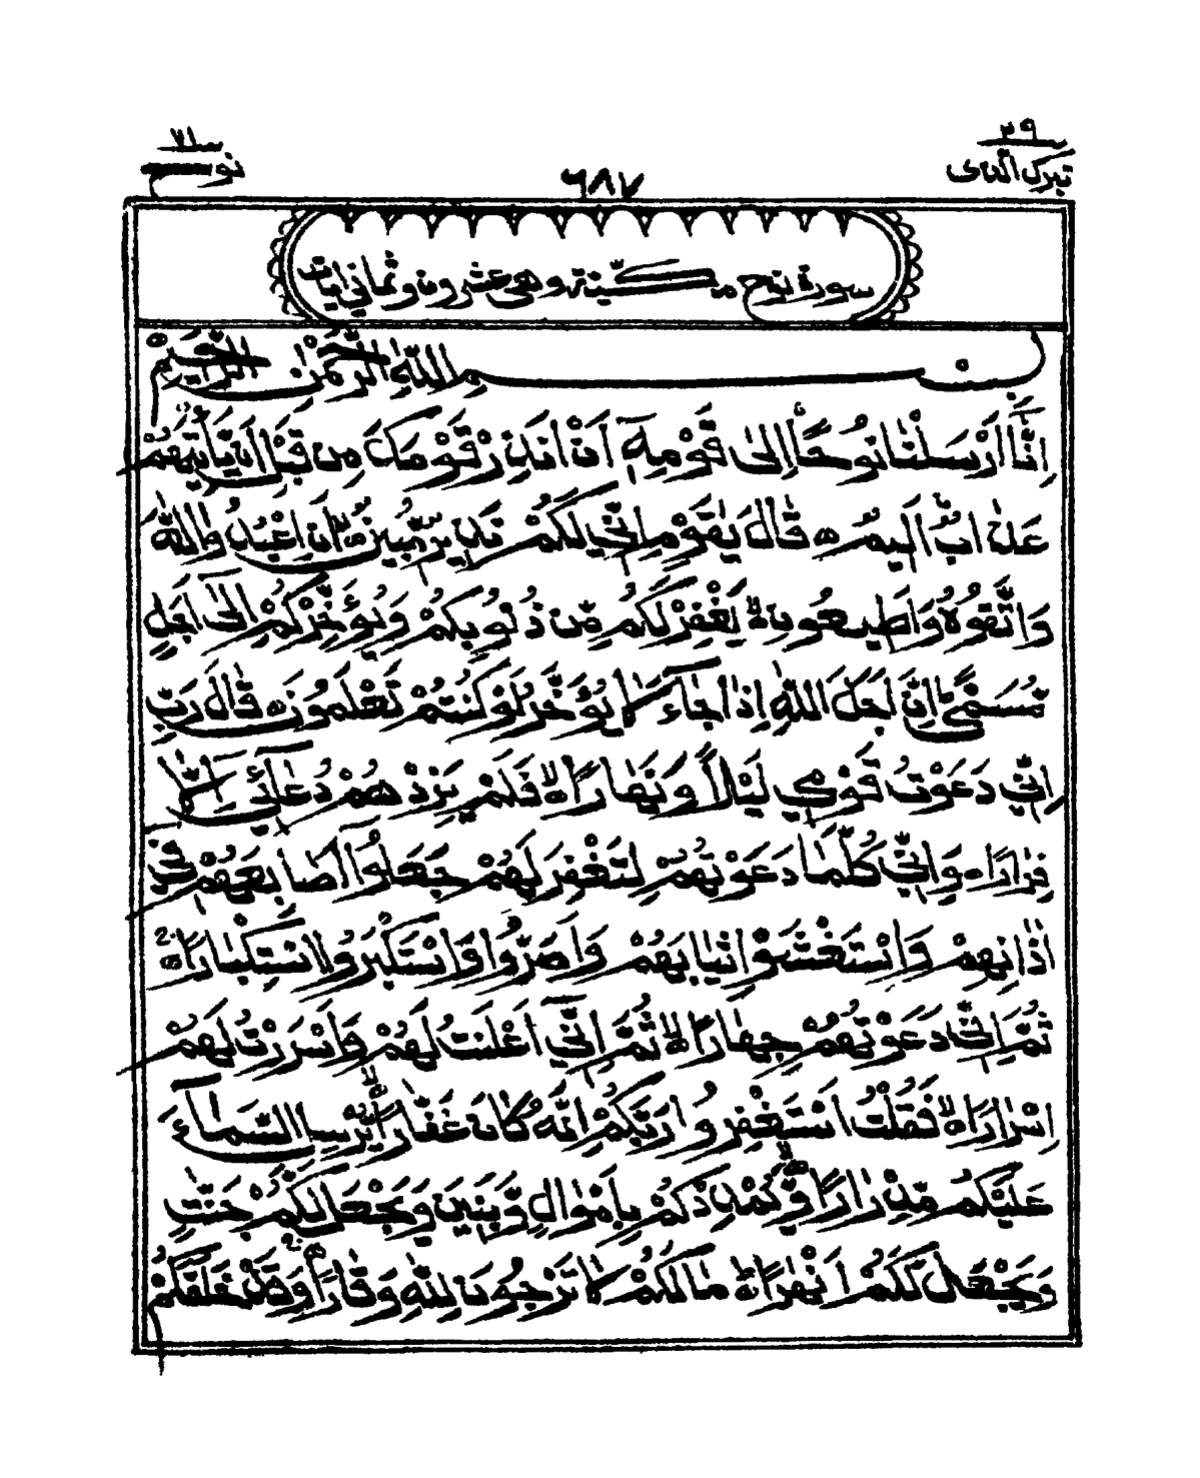 ٢٩
تبرك الذى
٦٨٧
٧١
نوح
سورة نوح مكيّة وهى عشرون وثمانى ايات
بِسْمِ اللّٰهِ الرَّحْمٰنِ الرَّحِيْمِ
اِنَّا اَرْسَلْنَا نُوْحًا اِلٰى قَوْمِهٖٓ اَنْ اَنْذِرْ قَوْمَكَ مِنْ قَبْلِ اَنْ يَّاْتِيَهُمْ
عَذَابٌ اَلِيْمٌ ۝ قَالَ يٰقَوْمِ اِنِّيْ لَكُمْ نَذِيْرٌ مُّبِيْنٌ ۝ اَنِ اعْبُدُوا اللّٰهَ
وَاتَّقُوْهُ وَاَطِيْعُوْنِ ۝ يَغْفِرْ لَكُمْ مِّنْ ذُنُوْبِكُمْ وَيُؤَخِّرْكُمْ اِلٰٓى اَجَلٍ
مُّسَمًّى ۚ اِنَّ اَجَلَ اللّٰهِ اِذَا جَآءَ لَا يُؤَخَّرُ لَوْ كُنْتُمْ تَعْلَمُوْنَ ۝ قَالَ رَبِّ
اِنِّيْ دَعَوْتُ قَوْمِيْ لَيْلًا وَّنَهَارًا ۝ فَلَمْ يَزِدْهُمْ دُعَآءِيْٓ اِلَّا
فِرَارًا ۝ وَاِنِّيْ كُلَّمَا دَعَوْتُهُمْ لِتَغْفِرَ لَهُمْ جَعَلُوْٓا اَصَابِعَهُمْ فِيْٓ
اٰذَانِهِمْ وَاسْتَغْشَوْا ثِيَابَهُمْ وَاَصَرُّوْا وَاسْتَكْبَرُوا اسْتِكْبَارًا ۝
ثُمَّ اِنِّيْ دَعَوْتُهُمْ جِهَارًا ۝ ثُمَّ اِنِّيْٓ اَعْلَنْتُ لَهُمْ وَاَسْرَرْتُ لَهُمْ
اِسْرَارًا ۝ فَقُلْتُ اسْتَغْفِرُوْا رَبَّكُمْ اِنَّهٗ كَانَ غَفَّارًا ۝ يُّرْسِلِ السَّمَآءَ
عَلَيْكُمْ مِّدْرَارًا ۝ وَّيُمْدِدْكُمْ بِاَمْوَالٍ وَّبَنِيْنَ وَيَجْعَلْ لَّكُمْ جَنّٰتٍ
وَّيَجْعَلْ لَّكُمْ اَنْهٰرًا ۝ مَا لَكُمْ لَا تَرْجُوْنَ لِلّٰهِ وَقَارًا ۝ وَقَدْ خَلَقَكُمْ